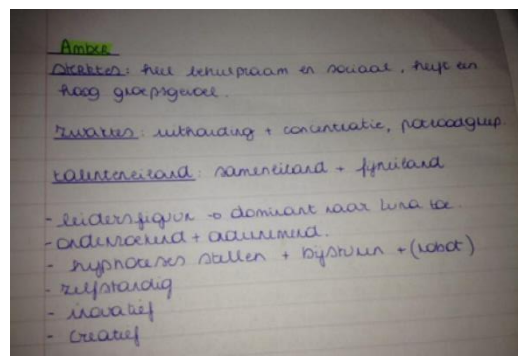 Amber
sterktes: heel behulpzaam en sociaal, heeft een
hoog groepsgevoel.
zwaktes: uithouding + concentratie, potloodgreep.
talenteneiland: sameneiland + fijneiland
- leidersfiguur → dominant naar Luna toe.
- onderzoekend + ondernemend.
- hypotheses stellen + bijsturen + (robot)
- zelfstandig
- inovatief
- creatief